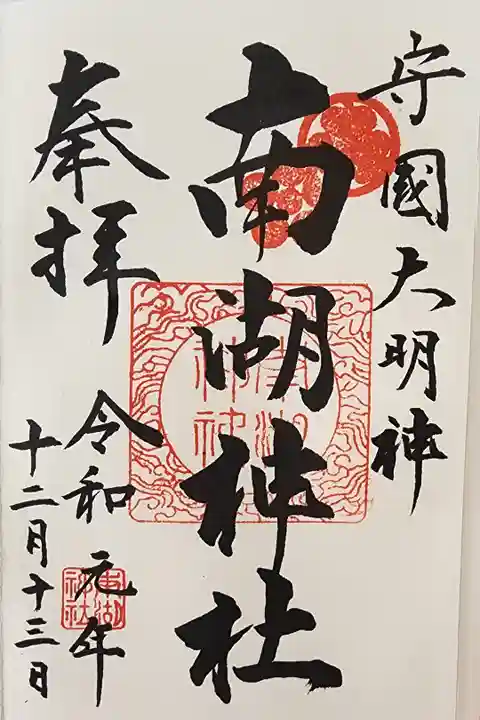 守國大明神
南湖神社
奉拝
令和元年
十二月十三日
南湖神社
南湖神社